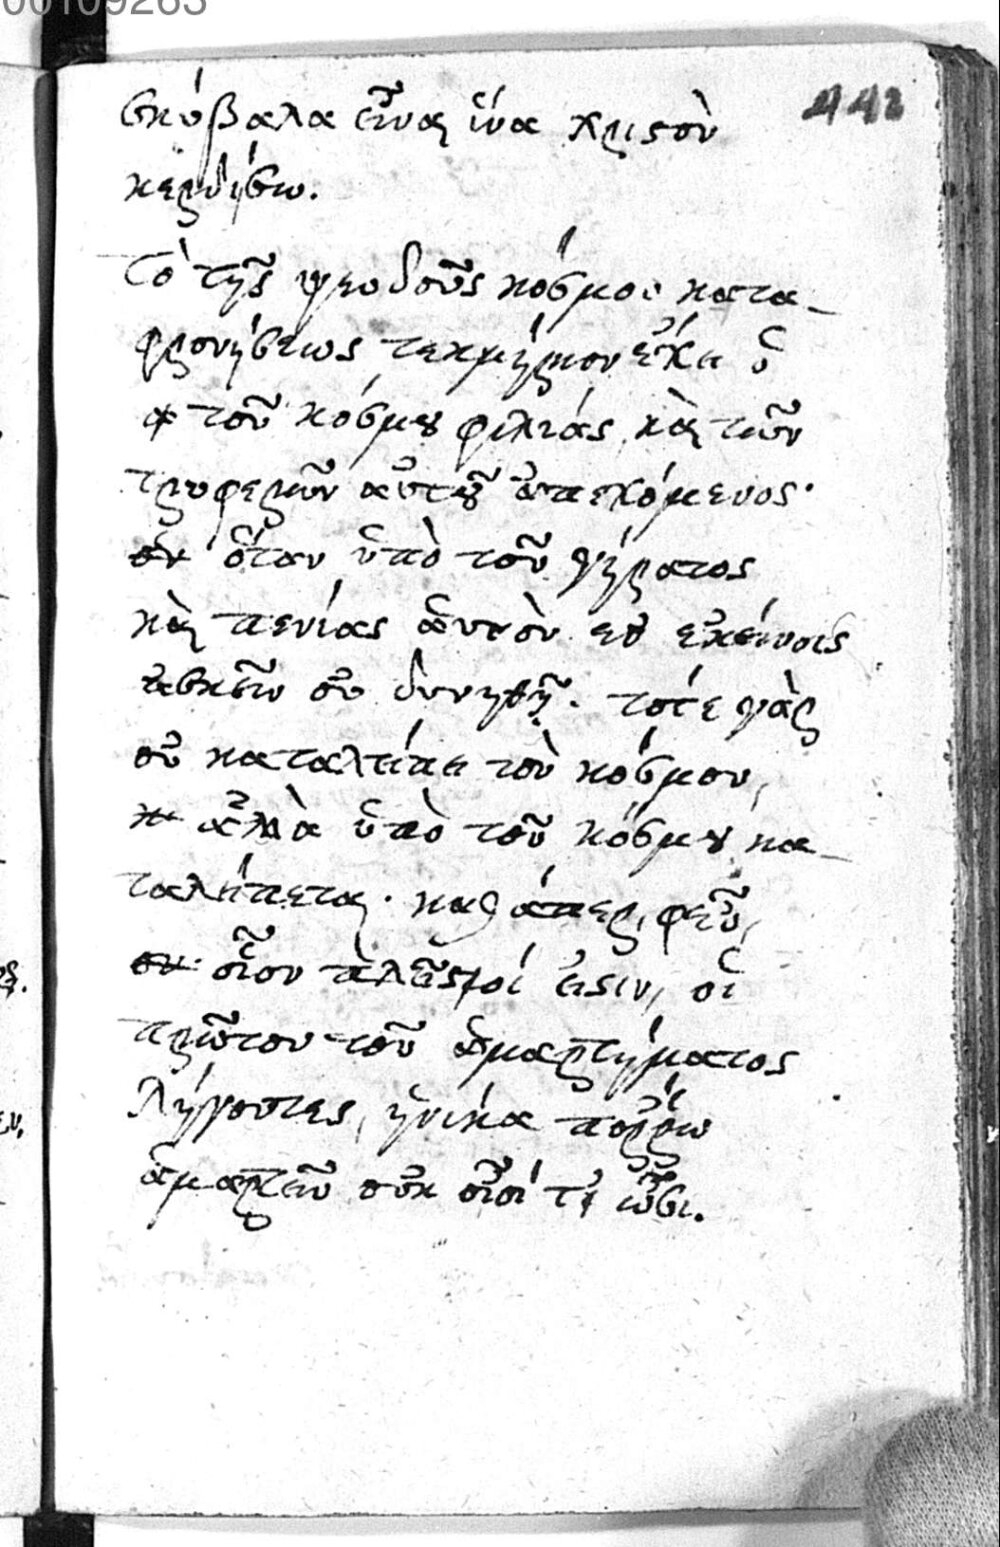 00109263
442
σκύβαλα εἶναι ἵνα χριστὸν
κερδήσω.
Τὸ τῆς ψευδοῦς κόσμου κατα-
φρονήσεως τεκμήριον ἔχει ὁ
τοῦ κόσμου φιλίας καὶ τῶν
τρυφερῶν αὐτοῦ ἀπεχόμενος·
ὅταν ὑπὸ τοῦ γήρατος
καὶ πενίας ἑαυτὸν ἐν ἐκείνοις
ἀσκεῖν οὐ δυνηθῇ. τότε γὰρ
οὐ καταλείπει τὸν κόσμον,
ἀλλὰ ὑπὸ τοῦ κόσμου κα-
ταλείπεται. καθάπερ, φεῦ,
οἷον πλεῖστοί εἰσιν, οἱ
πρῶτον τοῦ ἁμαρτήματος
λήγοντες, ἡνίκα πόρρω
ἁμαρτεῖν οὐκ οἷοί τε ὦσι.